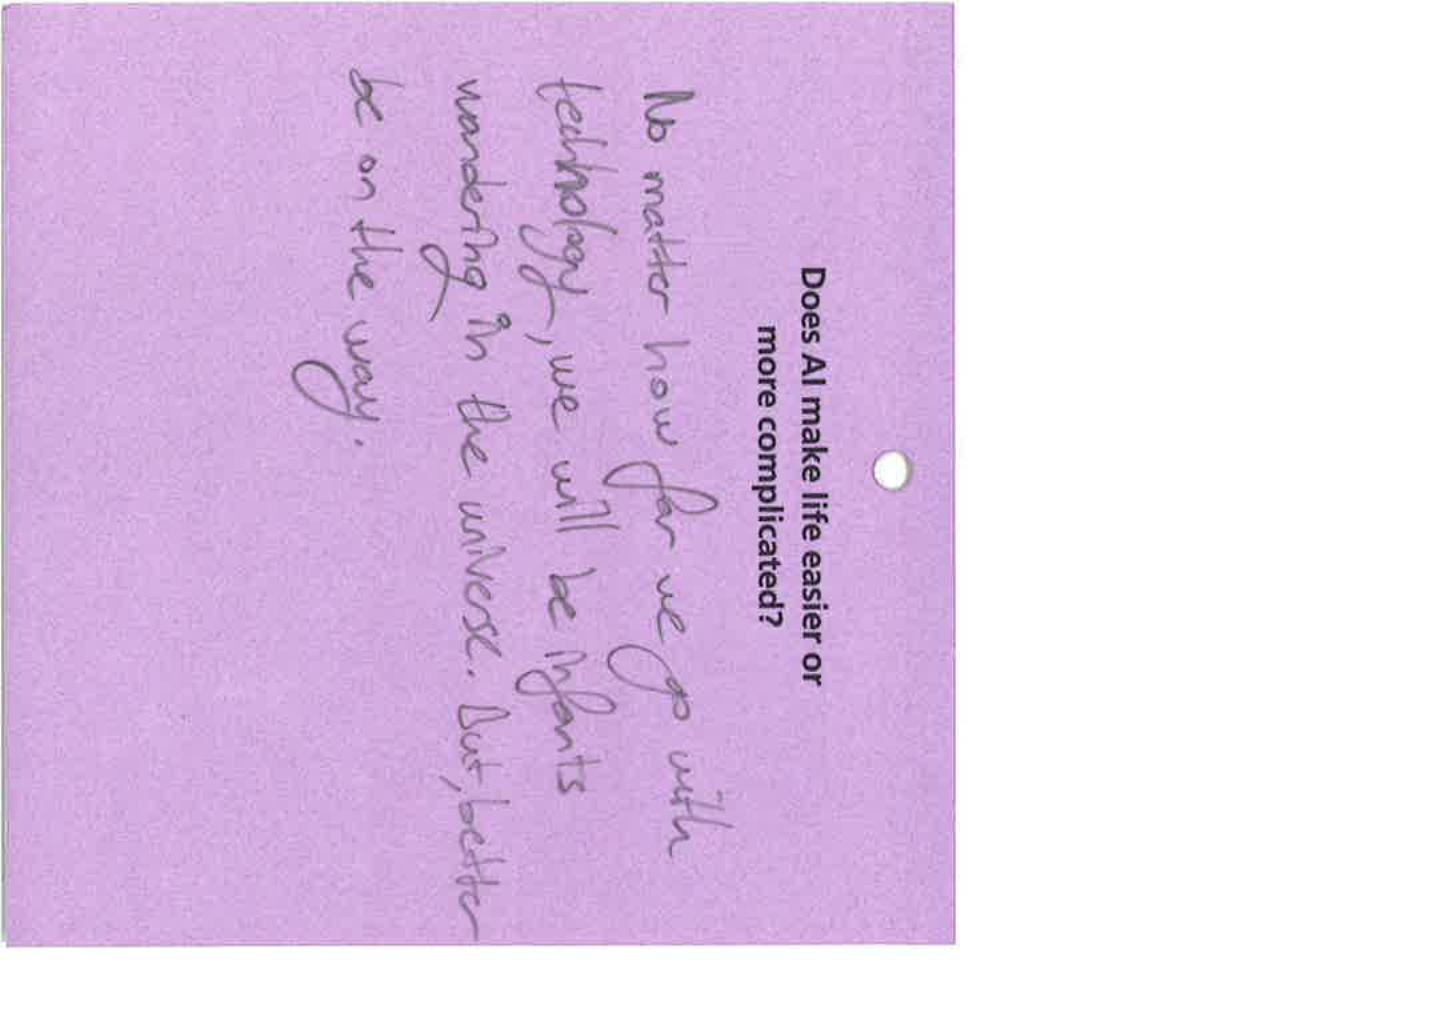 Does AI make life easier or
more complicated?
No matter how far we go with
technology, we will be infants
wandering in the universe. But, better
be on the way.